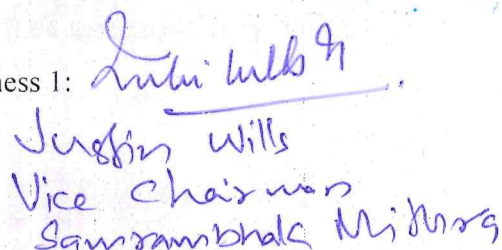 ness 1:
Justin Wills
Vice Chairman
Samrambhaka Mithra